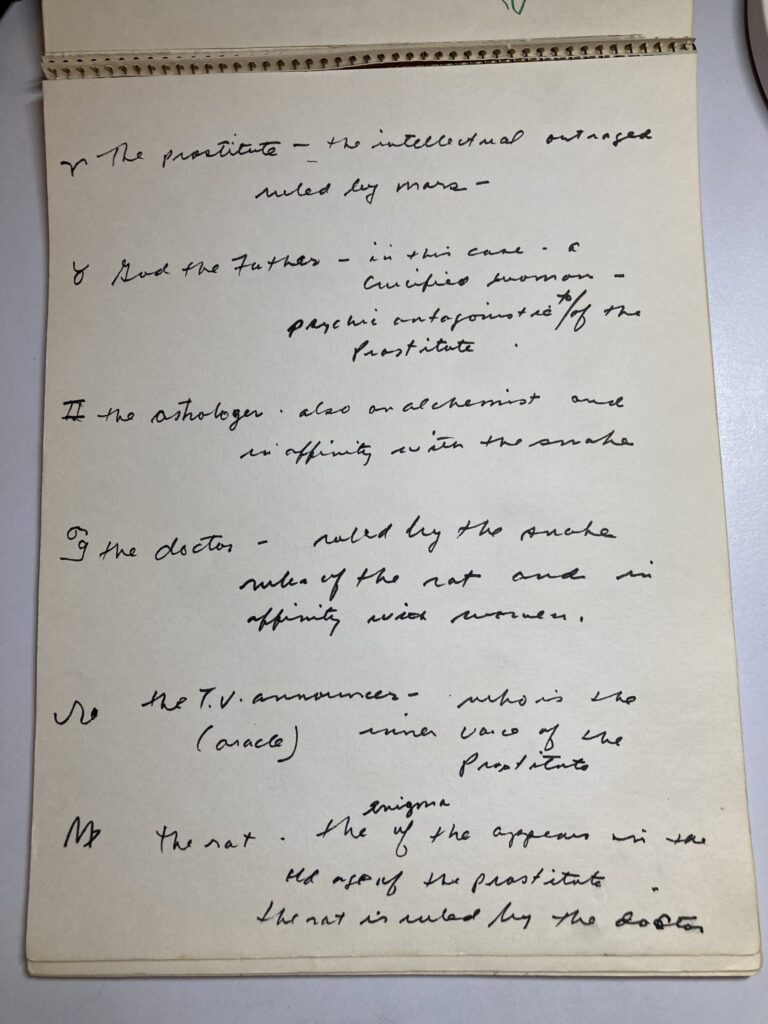 ♈ The prostitute – the intellectual outraged
ruled by mars –
♉ God the Father – in this case - a
crucified woman –
psychic antagonistic to/of the
Prostitute .
♊ the astrologer . also an alchemist and
in affinity with the snake
♋ the doctor – ruled by the snake
ruler of the rat and in
affinity with women.
♌ the T.V. announcer – who is the
(oracle) inner voice of the
Prostitute
enigma
♍ the rat . the of the appears in the
old age of the prostitute .
the rat is ruled by the doctor